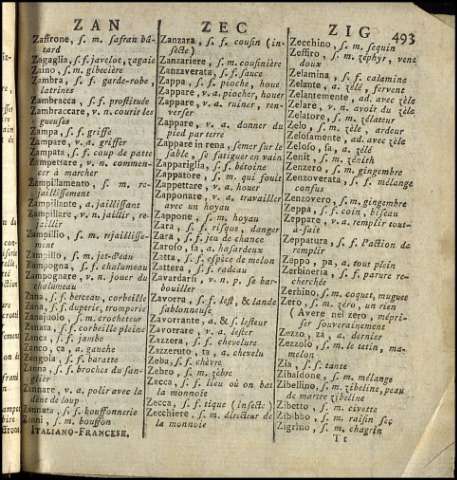 ZAN
ZEC
ZIG
493
Zaffrone, s. m. safran bâ-
tard
Zagaglia, s. f. javelot, zagaie
Zaino, s. m. gibecière
Zambra, s. f. garde-robe,
latrines
Zambracca, s. f. prostitude
Zambraccare, v. n. courir les
gueuses
Zampa, s. f. griffe
Zampare, v. a. griffer
Zampata, s. f. coup de patte
Zampettare, v. n. commen-
cer à marcher
Zampillamento, s. m. re-
jaillissement
Zampillante, a. jaillissant
Zampillare, v. n. jaillir, re-
jaillir
Zampillo, s. m. rejaillisse-
ment
Zampillo, s. m. jet-d'eau
Zampogna, s. f. chalumeau
Zampognare, v. n. jouer du
chalumeau
Zana, s. f. berceau, corbeille
Zana, s. f. duperie, tromperie
Zanajuolo, s. m. crocheteur
Zanata, s. f. corbeille pleine
Zanca, s. f. jambe
Zanco, ca, a. gauche
Zangola, s. f. baratte
Zanna, s. f. broches du san-
glier
Zannare, v. a. polir avec la
dent de loup
Zannata, s. f. bouffonnerie
Zanni, s. m. bouffon
ITALIANO-FRANCESE.
Zanzara, s. f. cousin (in-
secte)
Zanzariere, s. m. cousinière
Zanzaverata, s. f. sauce
Zappa, s. f. pioche, houe
Zappare, v. a. piocher, houer
Zappare, v. a. ruiner, ren-
verser
Zappare, v. a. donner du
pied par terre
Zappare in rena, semer sur le
sable, se fatiguer en vain
Zappariglia, s. f. bétoine
Zappatore, s. m. qui fouit
Zappettare, v. a. houer
Zapponare, v. a. travailler
avec un hoyau
Zappone, s. m. hoyau
Zara, s. f. risque, danger
Zara, s. f. jeu de chance
Zaroso, sa, a. hasardeux
Zatta, s. f. espèce de melon
Zattera, s. f. radeau
Zavardarsi, v. n. p. se bar-
bouiller
Zavorra, s. f. lest, & lande
sablonneuse
Zavorrante, a. & s. lesteur
Zavorrare, v. a. lester
Zazzera, s. f. chevelure
Zazzeruto, ta, a. chevelu
Zeba, s. f. chèvre
Zebro, s. m. zèbre
Zecca, s. f. lieu où on bat
la monnoie
Zecca, s. f. tique (insecte)
Zecchiere, s. m. directeur de
la monnoie
Zecchino, s. m. sequin
Zeffiro, s. m. zéphyr, vent
doux
Zelamina, s. f. calamine
Zelante, a. zélé, fervent
Zelantemente, ad. avec zèle
Zelare, v. n. avoir du zèle
Zelatore, s. m. zélateur
Zelo, s. m. zèle, ardeur
Zelosamente, ad. avec zèle
Zeloso, sa, a. zélé
Zenit, s. m. zénith
Zenzero, s. m. gingembre
Zenzoverata, s. f. mélange
confus
Zenzovero, s. m. gingembre
Zeppa, s. f. coin, biseau
Zeppare, v. a. remplir tout-
à-fait
Zeppatura, s. f. l'action de
remplir
Zeppo, pa, a. tout plein
Zerbineria, s. f. parure re-
cherchée
Zerbino, s. m. coquet, muguet
Zero, s. m. zéro, un rien
(Avere nel zero, mépri-
ser souverainement
Zezzo, za, a. dernier
Zezzolo, s. m. le tetin, ma-
melon
Zia, s. f. tante
Zibaldone, s. m. mélange
Zibellino, s. m. zibeline, peau
de martre zibeline
Zibetto, s. m. civette
Zibibbo, s. m. raisin sec
Zigrino, s. m. chagrin
Tt